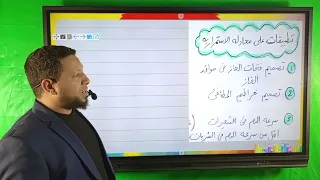 تطبيقات على معادلة الاستمرارية
① تصميم فتحات الغاز في مواقد
الغاز
② تصميم خراطيم المطافئ
③ سرعة الدم في الشعيرات
أقل من سرعة الدم في الشريان